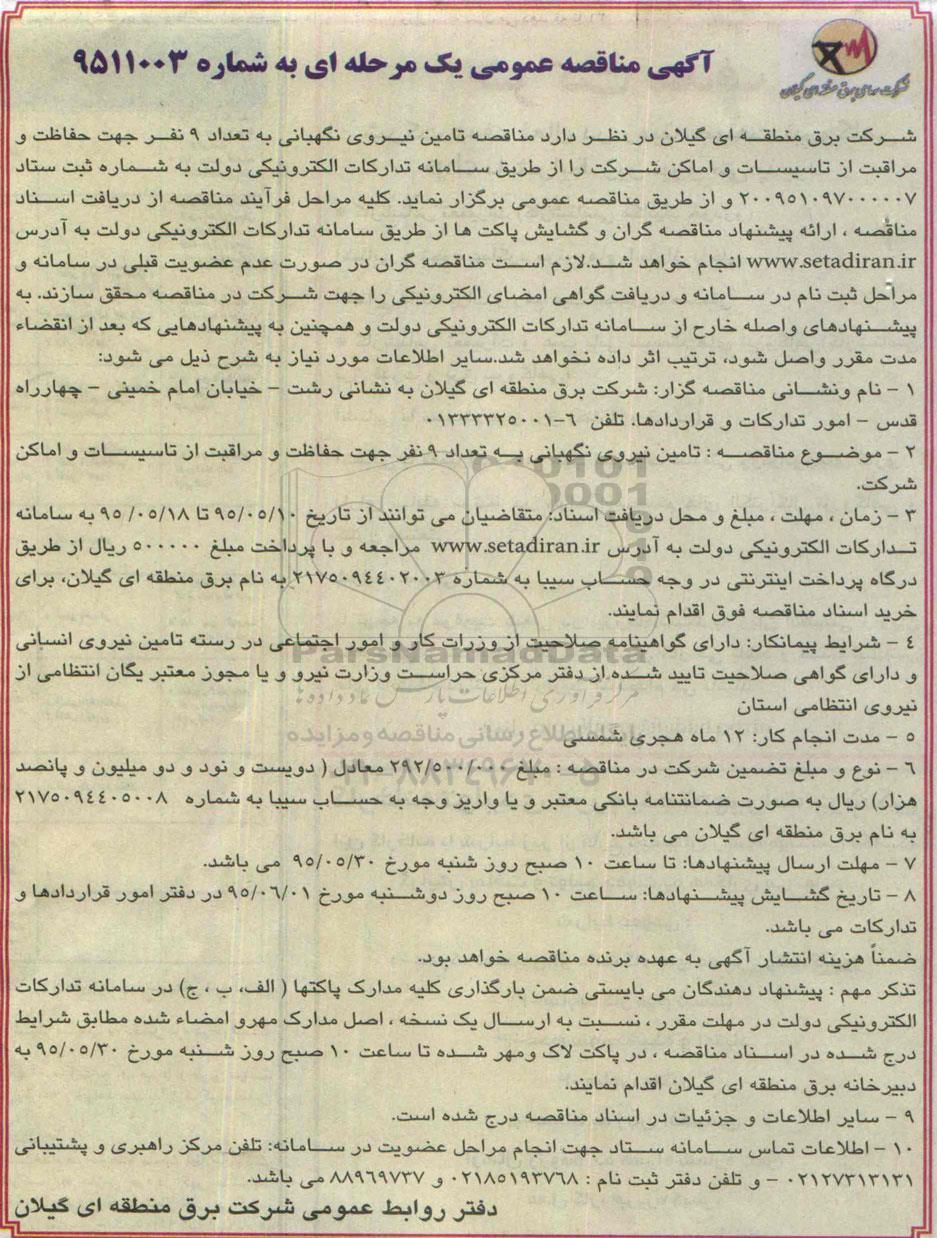 آگهی مناقصه عمومی یک مرحله ای به شماره ۹۵۱۱۰۰۳
شرکت سهامی برق منطقه ای گیلان
شرکت برق منطقه ای گیلان در نظر دارد مناقصه تامین نیروی نگهبانی به تعداد ۹ نفر جهت حفاظت و
مراقبت از تاسیسات و اماکن شرکت را از طریق سامانه تدارکات الکترونیکی دولت به شماره ثبت ستاد
۲۰۰۹۵۱۰۹۷۰۰۰۰۰۷ و از طریق مناقصه عمومی برگزار نماید. کلیه مراحل فرآیند مناقصه از دریافت اسناد
مناقصه ، ارائه پیشنهاد مناقصه گران و گشایش پاکت ها از طریق سامانه تدارکات الکترونیکی دولت به آدرس
www.setadiran.ir انجام خواهد شد.لازم است مناقصه گران در صورت عدم عضویت قبلی در سامانه و
مراحل ثبت نام در سامانه و دریافت گواهی امضای الکترونیکی را جهت شرکت در مناقصه محقق سازند. به
پیشنهادهای واصله خارج از سامانه تدارکات الکترونیکی دولت و همچنین به پیشنهادهایی که بعد از انقضاء
مدت مقرر واصل شود، ترتیب اثر داده نخواهد شد.سایر اطلاعات مورد نیاز به شرح ذیل می شود:
۱ - نام ونشانی مناقصه گزار: شرکت برق منطقه ای گیلان به نشانی رشت - خیابان امام خمینی - چهارراه
قدس - امور تدارکات و قراردادها. تلفن ۶-۰۱۳۳۳۳۲۵۰۰۱
۲ - موضوع مناقصه : تامین نیروی نگهبانی به تعداد ۹ نفر جهت حفاظت و مراقبت از تاسیسات و اماکن
شرکت.
۳ - زمان ، مهلت ، مبلغ و محل دریافت اسناد: متقاضیان می توانند از تاریخ ۹۵/۰۵/۱۰ تا ۹۵/۰۵/۱۸ به سامانه
تدارکات الکترونیکی دولت به آدرس www.setadiran.ir مراجعه و با پرداخت مبلغ ۵۰۰۰۰۰ ریال از طریق
درگاه پرداخت اینترنتی در وجه حساب سیبا به شماره ۲۱۷۵۰۹۴۴۰۲۰۰۳ به نام برق منطقه ای گیلان، برای
خرید اسناد مناقصه فوق اقدام نمایند.
۴ - شرایط پیمانکار: دارای گواهینامه صلاحیت از وزرات کار و امور اجتماعی در رسته تامین نیروی انسانی
و دارای گواهی صلاحیت تایید شده از دفتر مرکزی حراست وزارت نیرو و یا مجوز معتبر یگان انتظامی از
نیروی انتظامی استان
۵ - مدت انجام کار: ۱۲ ماه هجری شمسی
۶ - نوع و مبلغ تضمین شرکت در مناقصه : مبلغ ۲۹۲/۵۰۰/۰۰۰ معادل ( دویست و نود و دو میلیون و پانصد
هزار) ریال به صورت ضمانتنامه بانکی معتبر و یا واریز وجه به حساب سیبا به شماره ۲۱۷۵۰۹۴۴۰۵۰۰۸
به نام برق منطقه ای گیلان می باشد.
۷ - مهلت ارسال پیشنهادها: تا ساعت ۱۰ صبح روز شنبه مورخ ۹۵/۰۵/۳۰ می باشد.
۸ - تاریخ گشایش پیشنهادها: ساعت ۱۰ صبح روز دوشنبه مورخ ۹۵/۰۶/۰۱ در دفتر امور قراردادها و
تدارکات می باشد.
ضمناً هزینه انتشار آگهی به عهده برنده مناقصه خواهد بود.
تذکر مهم : پیشنهاد دهندگان می بایستی ضمن بارگذاری کلیه مدارک پاکتها ( الف، ب ، ج) در سامانه تدارکات
الکترونیکی دولت در مهلت مقرر ، نسبت به ارسال یک نسخه ، اصل مدارک مهرو امضاء شده مطابق شرایط
درج شده در اسناد مناقصه ، در پاکت لاک ومهر شده تا ساعت ۱۰ صبح روز شنبه مورخ ۹۵/۰۵/۳۰ به
دبیرخانه برق منطقه ای گیلان اقدام نمایند.
۹ - سایر اطلاعات و جزئیات در اسناد مناقصه درج شده است.
۱۰ - اطلاعات تماس سامانه ستاد جهت انجام مراحل عضویت در سامانه: تلفن مرکز راهبری و پشتیبانی
۰۲۱۲۷۳۱۳۱۳۱ - و تلفن دفتر ثبت نام : ۰۲۱۸۵۱۹۳۷۶۸ و ۸۸۹۶۹۷۳۷ می باشد.
دفتر روابط عمومی شرکت برق منطقه ای گیلان
ParsNamadData
مرکز فرآوری اطلاعات پارس نماد داده ها